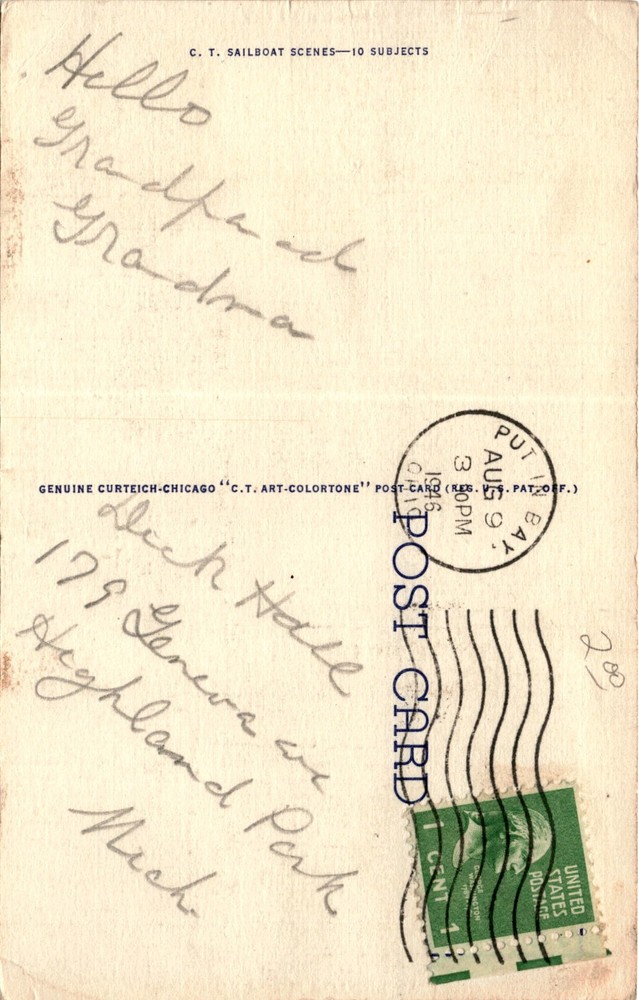 C. T. SAILBOAT SCENES—10 SUBJECTS
Hello
Grandpa and
Grandma
GENUINE CURTEICH-CHICAGO "C.T. ART-COLORTONE" POST CARD (REG. U. S. PAT. OFF.)
POST CARD
PUT IN BAY,
AUG 9
3 PM
1946
OHIO
Dick Hall
179 Geneva ave
Highland Park
Mich.
2.00
UNITED
STATES
POSTAGE
GEORGE
WASHINGTON
1 CENT 1